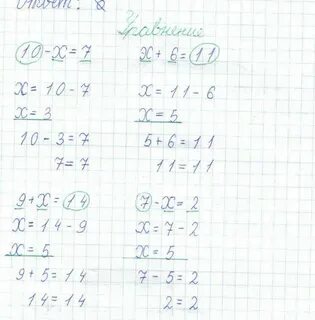 Ответ: 2
Уравнение
10-х=7
х=10-7
х=3
10-3=7
7=7
х+6=11
х=11-6
х=5
5+6=11
11=11
9+х=14
х=14-9
х=5
9+5=14
14=14
7-х=2
х=7-2
х=5
7-5=2
2=2